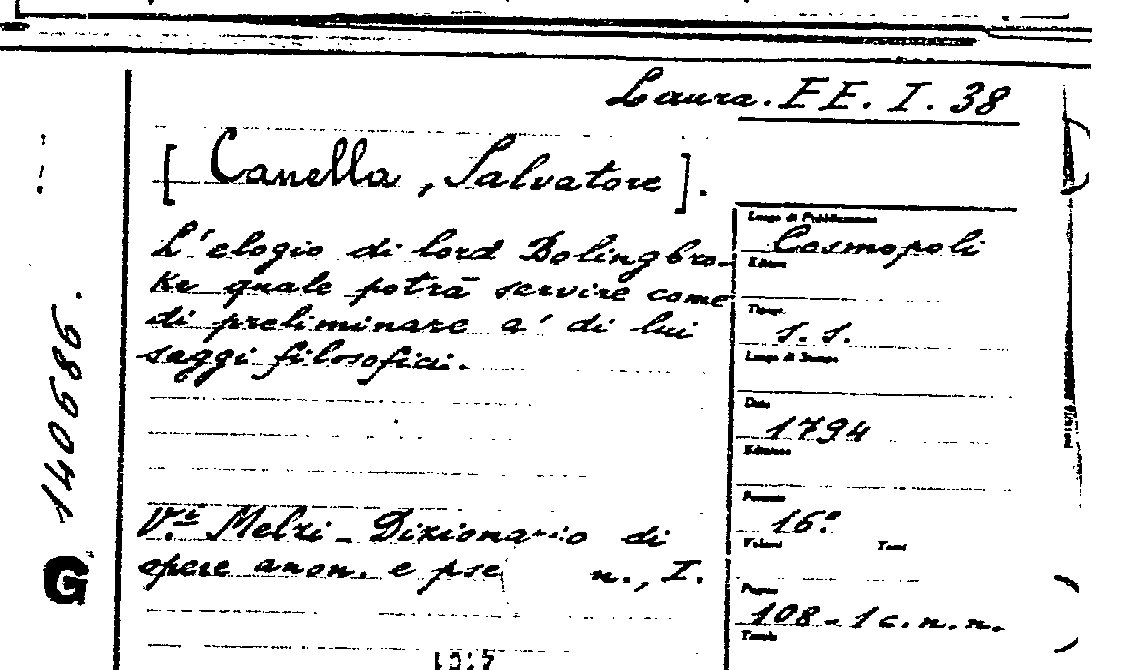 Laura. EE. I. 38
[ Canella, Salvatore ].
L'elogio di lord Bolingbro-
ke quale potrà servire come
di preliminare a' di lui
saggi filosofici.
V.ᵉ Melzi - Dizionario di
opere anon. e pse n., I.
Luogo di Pubblicazione
Cosmopoli
Editore
Tipogr.
s. s.
Luogo di Stampa
Data
1794
Edizione
Formato
16.º
Volumi Tomi
Pagine
108 - 1 c. n. n.
Tavole
G 140686.